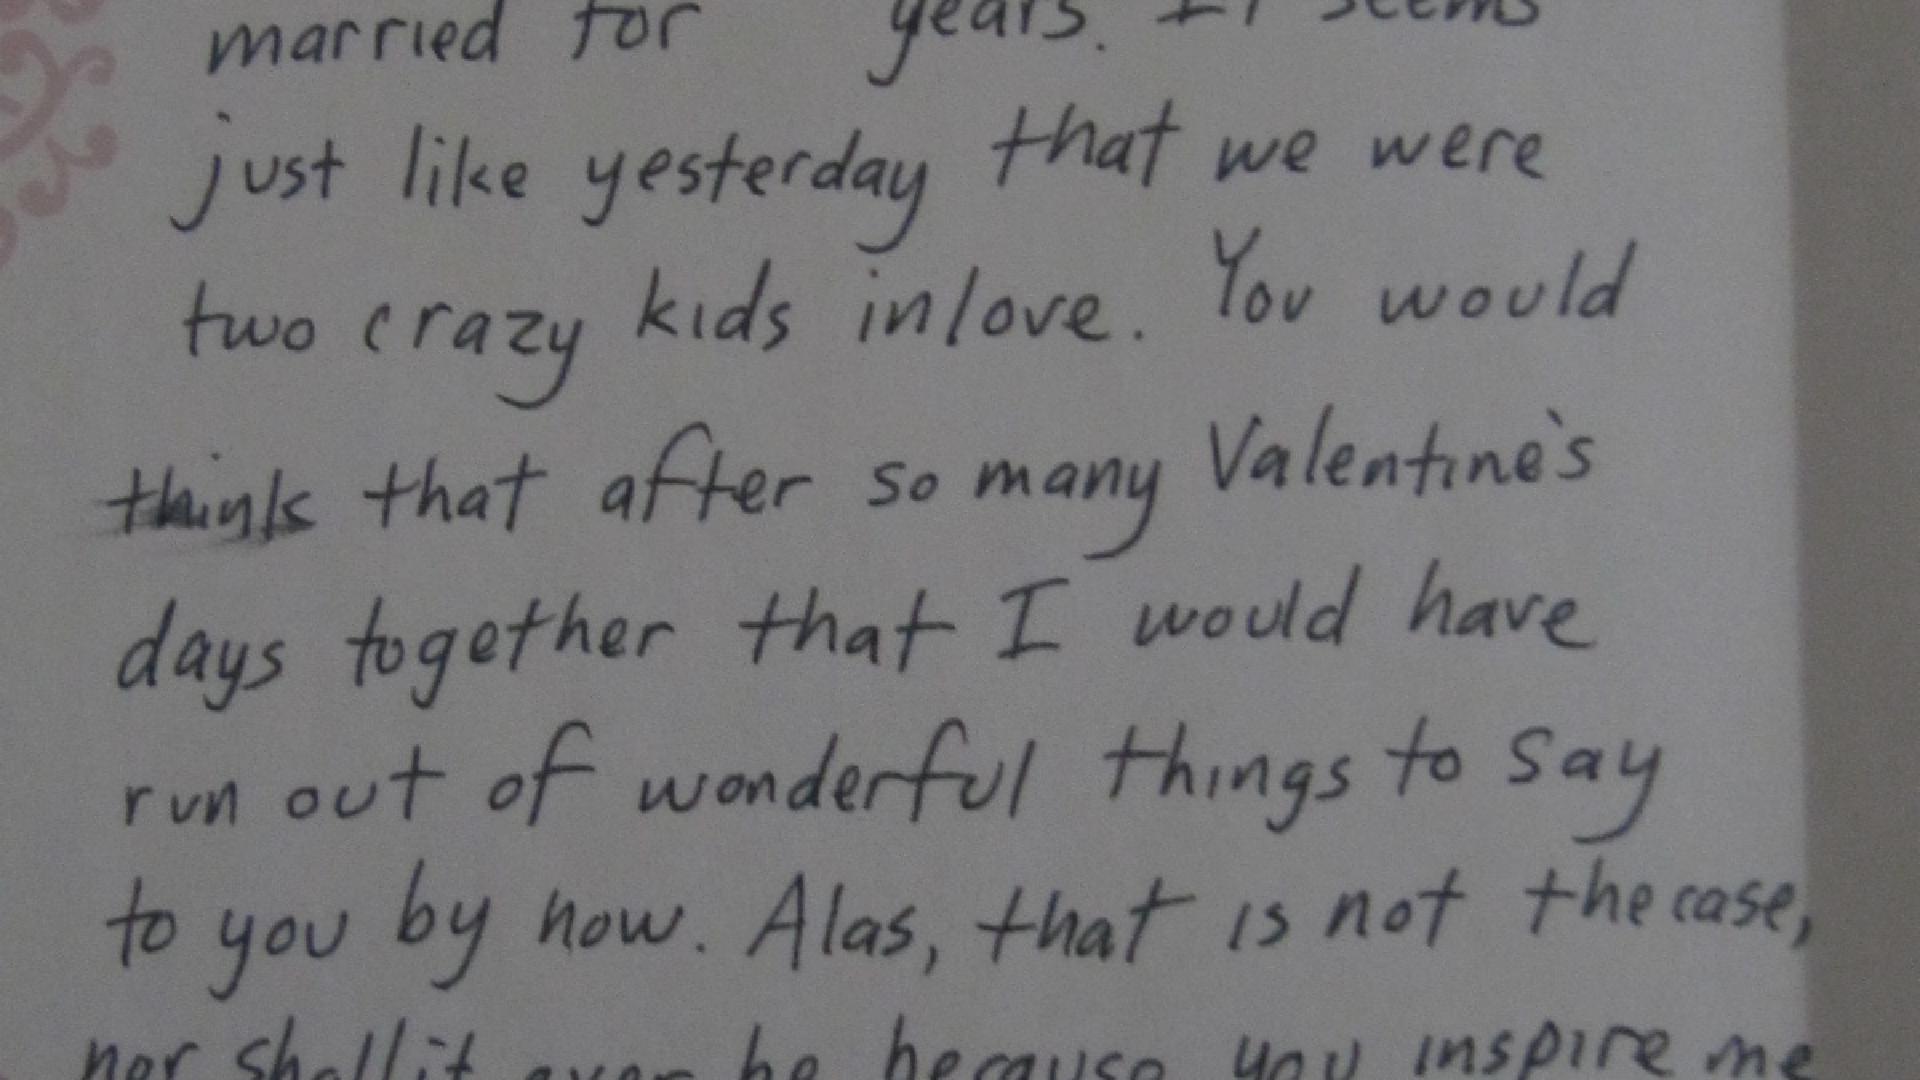 married for years. It seems
just like yesterday that we were
two crazy kids inlove. You would
think that after so many Valentine's
days together that I would have
run out of wonderful things to say
to you by now. Alas, that is not the case,
nor shall it ever be because you inspire me